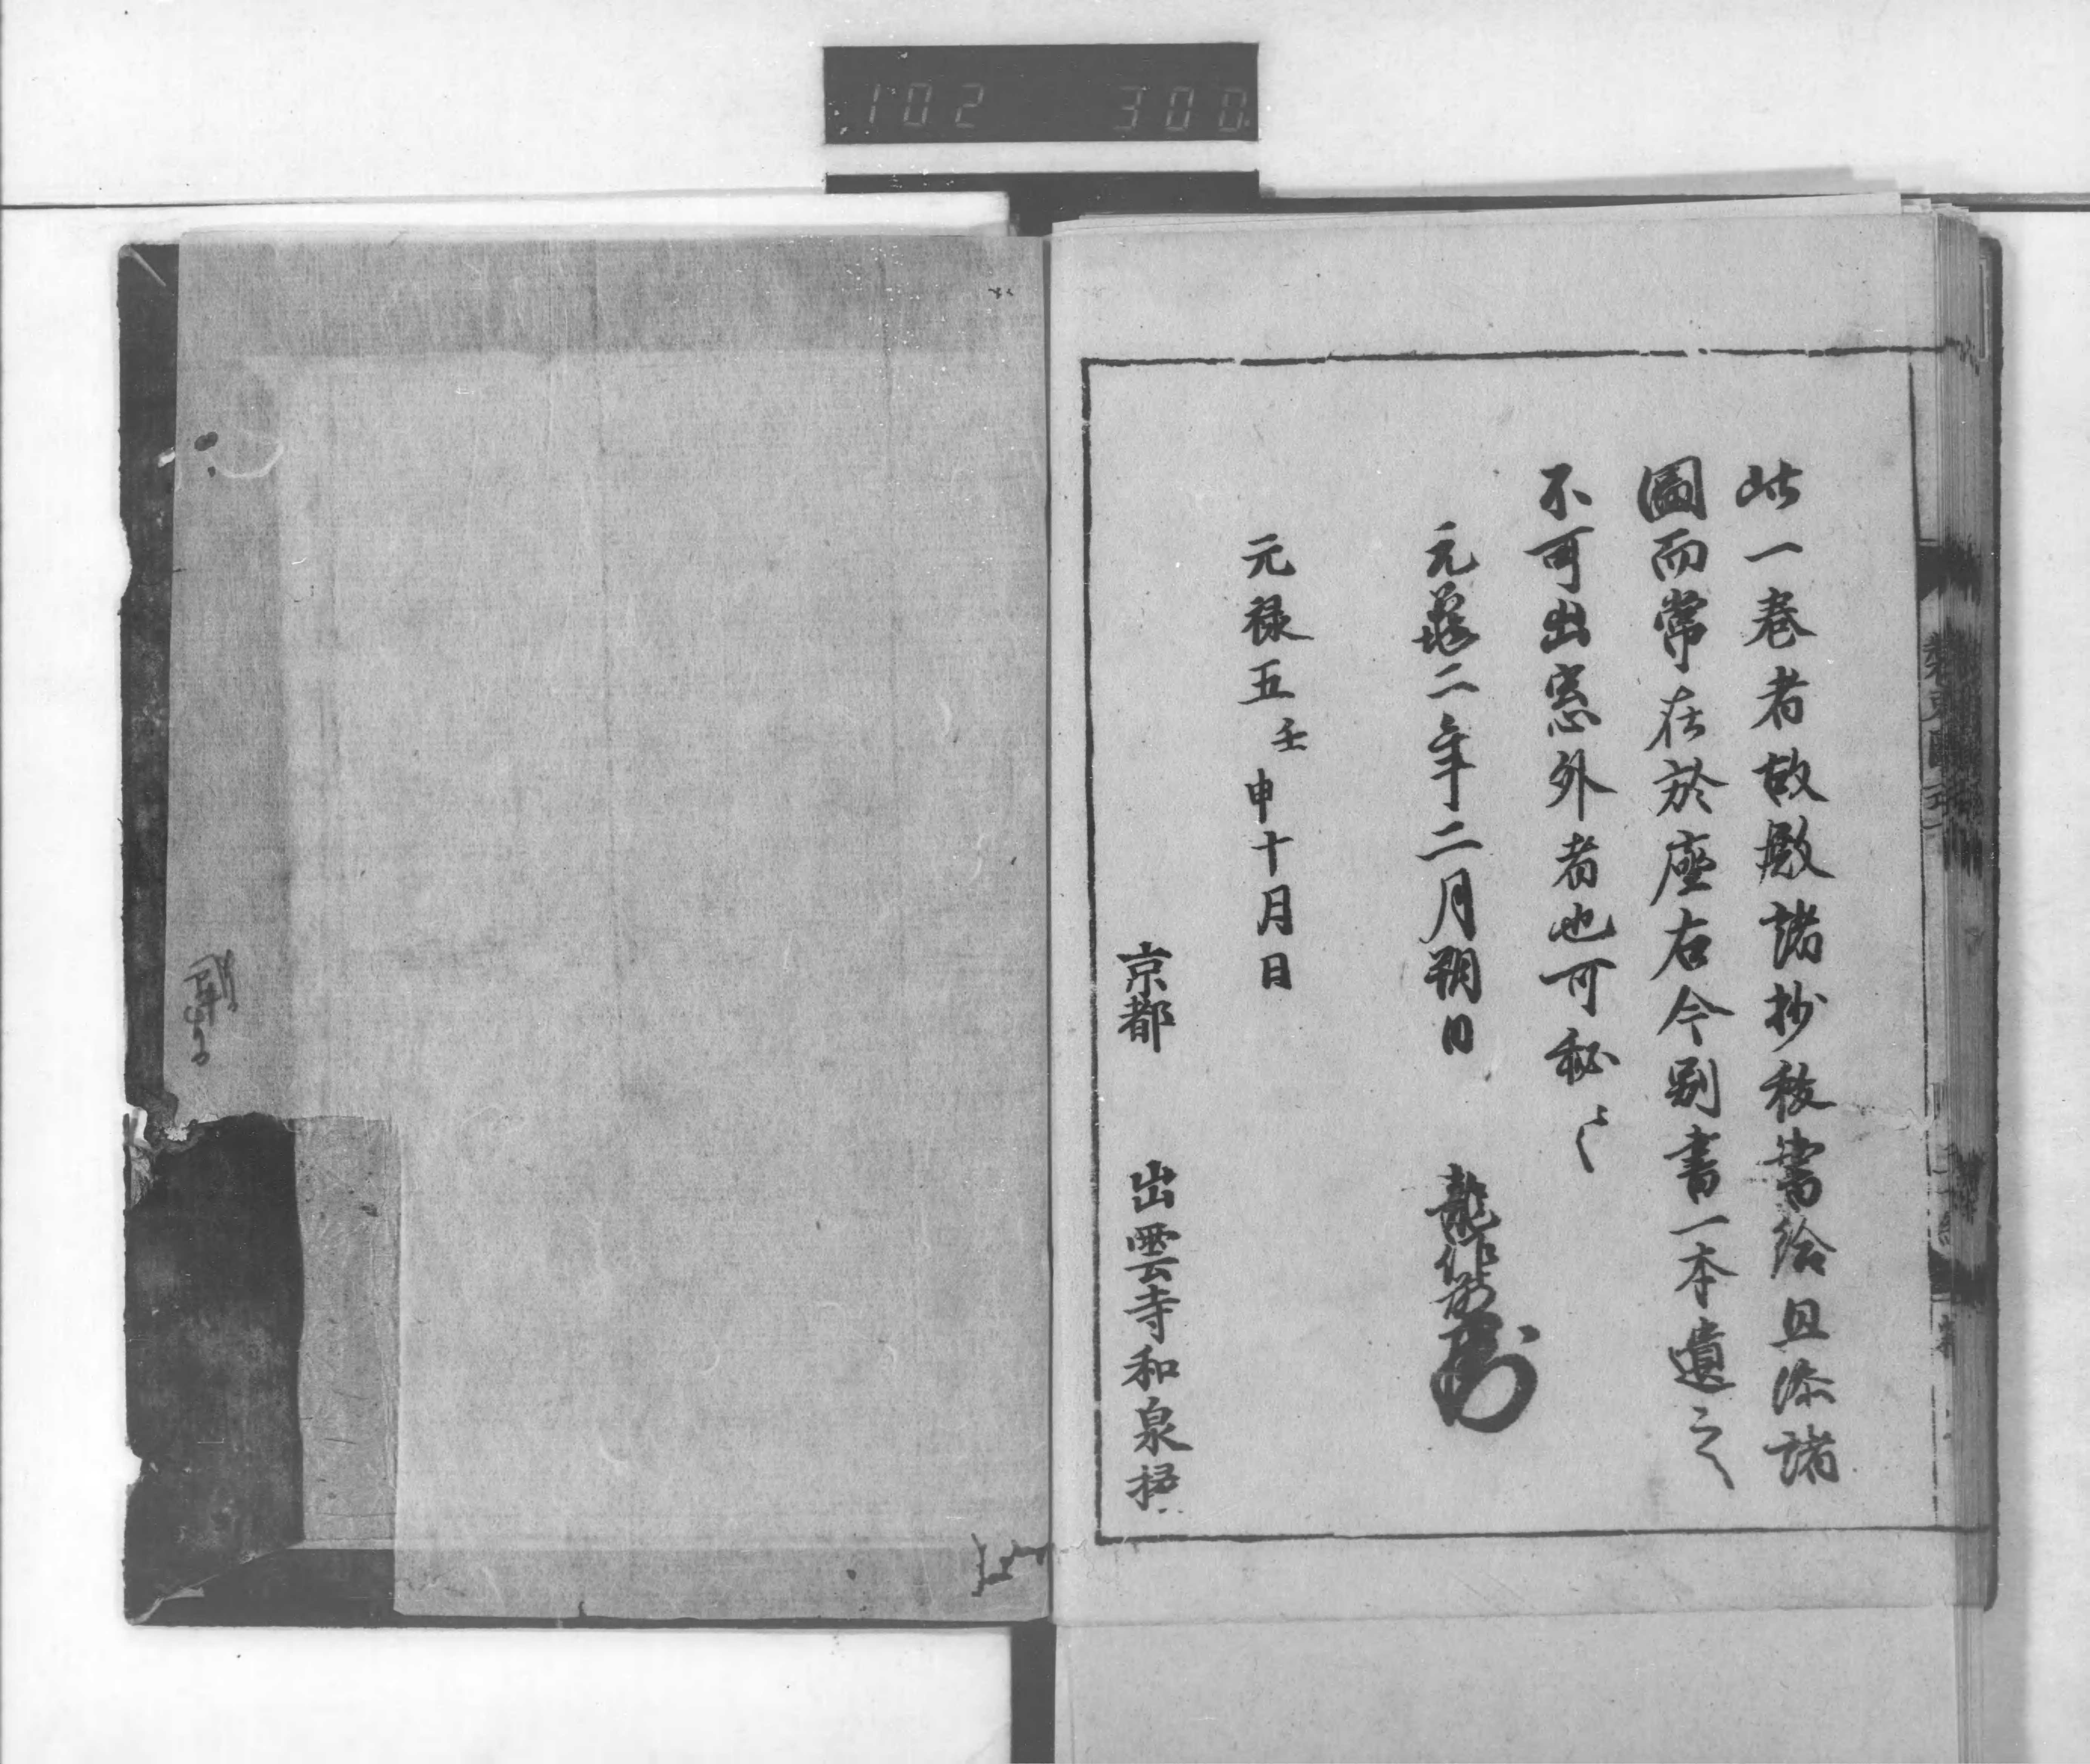 102 300
此一巻者故殿諸抄秘蜜給且添諸
圖而常在於座右今別書一本遺之
不可出窓外者也可秘〻
元龜二年二月朔日
元禄五壬申十月日
京都 出雲寺和泉掾